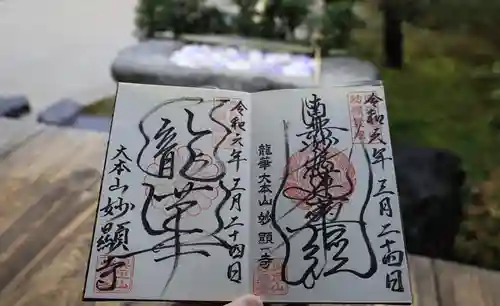 令和六年三月二十四日
南無妙法蓮華経
龍華
大本山妙顯寺
令和六年三月二十四日
龍華
大本山妙顯寺